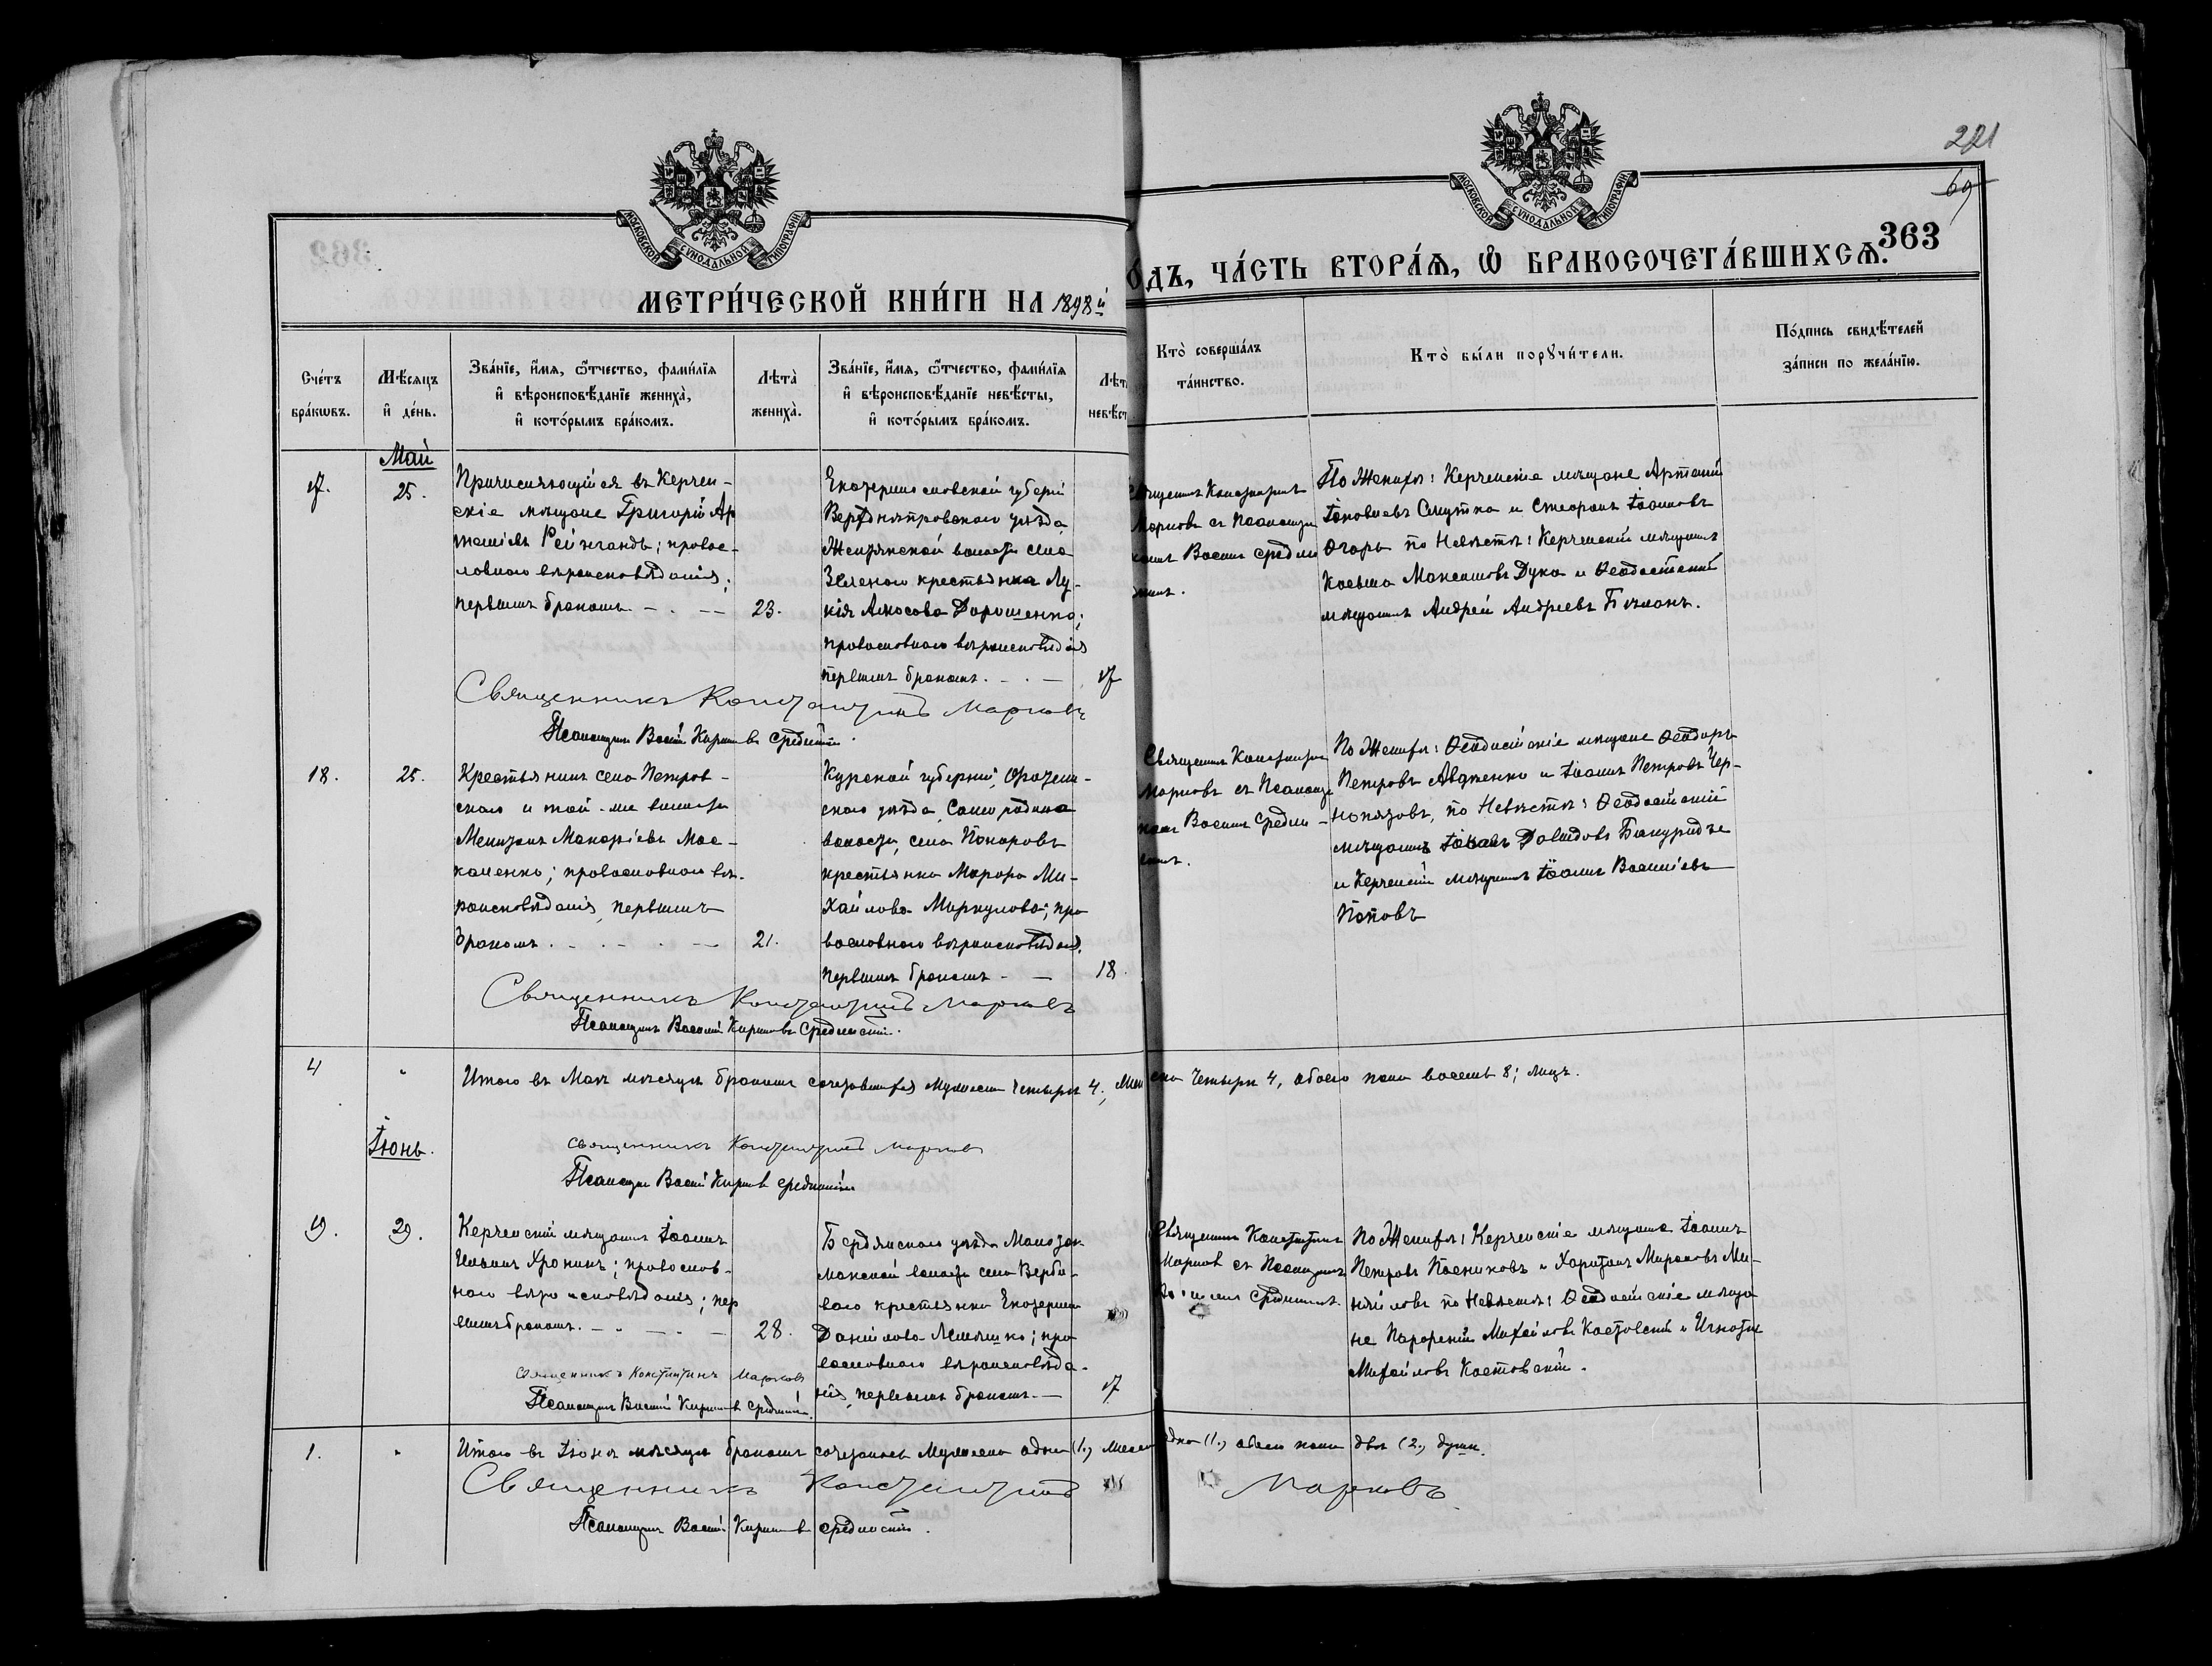 221
69
363
МОСКОВСКОЙ СѴНОДАЛЬНОЙ ТИПОГРАФІИ
МОСКОВСКОЙ СѴНОДАЛЬНОЙ ТИПОГРАФІИ
МЕТРИ́ЧЕСКОЙ КНИ́ГИ НА 1898й
О́ДЪ, ЧА́СТЬ ВТОРА́Я, Ѡ БРАКОСОЧЕТА́ВШИХСЯ.
Сче́тъ
бра́кѡвъ.
Мѣ́сяцъ
и҆ де́нь.
Зва́нїе, и҆́мя, ѻ҆́тчество, фами́лїя
и҆ вѣроисповѣ́данїе жениха̀,
и҆ кото́рымъ бра́комъ.
Лѣта̀
жениха̀.
Зва́нїе, и҆́мя, ѻ҆́тчество, фами́лїя
и҆ вѣроисповѣ́данїе невѣ́сты,
и҆ кото́рымъ бра́комъ.
Лѣт
невѣст
Кто̀ соверша́лъ
та́инство.
Кто̀ бы́ли порꙋчи́тели.
По́дпись свидѣ́телей
за́писи по жела́нїю.
Май
17.
25.
Причисляющійся въ Керчен-
скіе мѣщане Григорій Ар
темьевъ Рейнгандъ; правос-
лавнаго вѣроисповѣданія;
первымъ бракомъ
23.
Екатеринославской губерніи
Верхднѣпровскаго уѣзда
волости села
Зеленаго крестьянка Лу-
кія Амосова Дорошенко;
православнаго вѣроисповѣданія
первымъ бракомъ.
17
Священникъ Константинъ
Марковъ съ Псаломщи
комъ Васил. Средин
скимъ.
По Женихѣ: Керченскіе мѣщане Артемій
Іаковлевъ Смутко и Стефанъ Іоанновъ
Огарь по Невѣстѣ: Керченскій мѣщанинъ
Косьма Максимовъ Дуко и Ѳеодосійскій
мѣщанинъ Андрей Андреевъ
Священникъ Константинъ Марковъ
Псаломщикъ Василій Кириловъ Срединскій.
18.
25.
Крестьянинъ села Петров-
скаго и той-же волости
Мелитонъ Макарьевъ Мос-
каленко; православнаго вѣ-
роисповѣданія, первымъ
бракомъ.
21.
Курской губерніи,
скаго уѣзда, Саморядина
волости, села Понаровъ
крестьянка Марѳа Ми-
хайлова Меркулова; пра
вославнаго вѣроисповѣданія.
первымъ бракомъ
18.
Священникъ Константинъ
Марковъ съ Псаломщи
комъ Васил. Средин-
скимъ.
По Женихѣ: Ѳеодосійскіе мѣщане Ѳеодоръ
Петровъ Авдженко и Іоаннъ Петровъ Чер-
нопязовъ, по Невѣстѣ: Ѳеодосійскій
мѣщанинъ Давидовъ Бакуридзе
и Керченскій мѣщанинъ Іоаннъ Васильевъ
Поповъ
Священникъ Константинъ Марковъ
Псаломщикъ Василій Кириловъ Срединскій.
4
Итого въ Маѣ мѣсяцѣ бракомъ сочетавшихся Мужеска четыре 4; Жен ска четыре 4, обоего пола восемь 8; лицъ.
Іюнь.
Священникъ Константинъ Марковъ
Псаломщикъ Василій Кириловъ Срединскій
19.
29.
Керченскій мѣщанинъ Іоаннъ
Ильинъ Хронинъ; православ-
наго вѣроисповѣданія; пер
вымъ бракомъ.
28.
Бердянскаго уѣзда
волости села Верби-
ваго крестьянка Екатерина
Данилова Лемешко; пра
вославнаго вѣроисповѣда-
нія, первымъ бракомъ.
17
Священникъ Константинъ
Марковъ съ Псаломщикомъ
Срединскимъ.
По Женихѣ: Керченскіе мѣщане Іоаннъ
Петровъ Посниковъ и Харитонъ Мироновъ
по Невѣстѣ: Ѳеодосійскіе мѣща
не Парфеній Михайловъ Костовскій и Игнатій
Михайловъ Костовскій.
Священникъ Константинъ Марковъ
Псаломщикъ Василій Кириловъ Срединскій.
1.
Итого въ Іюнѣ мѣсяцѣ бракомъ сочетались Мужеска одинъ (1.) Женска одна (1.) обоего пола двѣ (2.) души.
Священникъ Константинъ Марковъ
Псаломщикъ Василій Кириловъ Срединскій.